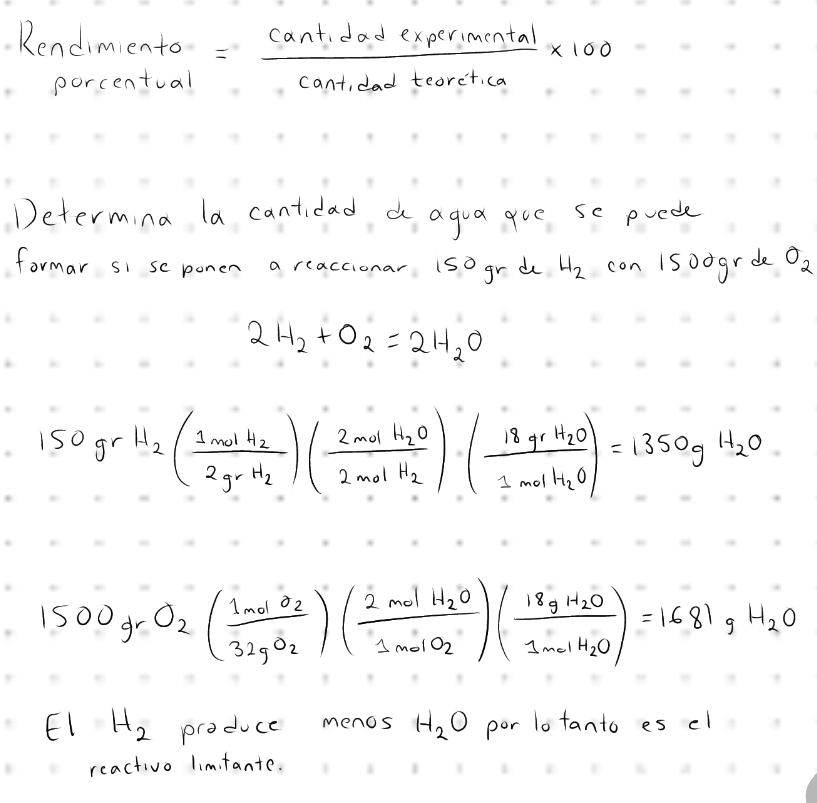 Rendimiento porcentual = cantidad experimental / cantidad teorética x 100
Determina la cantidad de agua que se puede
formar si se ponen a reaccionar 150 gr de H₂ con 1500gr de O₂
2H₂ + O₂ = 2H₂O
150 gr H₂ (1 mol H₂ / 2 gr H₂) (2 mol H₂O / 2 mol H₂) (18 gr H₂O / 1 mol H₂O) = 1350g H₂O
1500 gr O₂ (1 mol O₂ / 32g O₂) (2 mol H₂O / 1 mol O₂) (18g H₂O / 1 mol H₂O) = 1681 g H₂O
El H₂ produce menos H₂O por lo tanto es el
reactivo limitante.